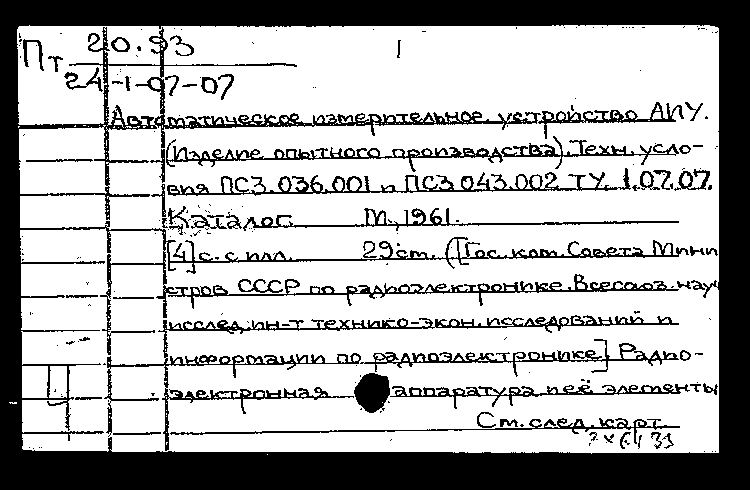 Пт 20.93 1
24-1-07-07
Автоматическое измерительное устройство АИУ.
(Изделие опытного производства). Техн. усло-
вия ПС3.036.001 и ПС3.043.002 ТУ. 1.07.07.
Каталог. М., 1961.
[4] с. с илл. 29 см. ([Гос. ком. Совета Мини
стров СССР по радиоэлектронике. Всесоюз. науч
исслед. ин-т технико-экон. исследований и
информации по радиоэлектронике]. Радио-
электронная аппаратура и её элементы
См. след. карт.